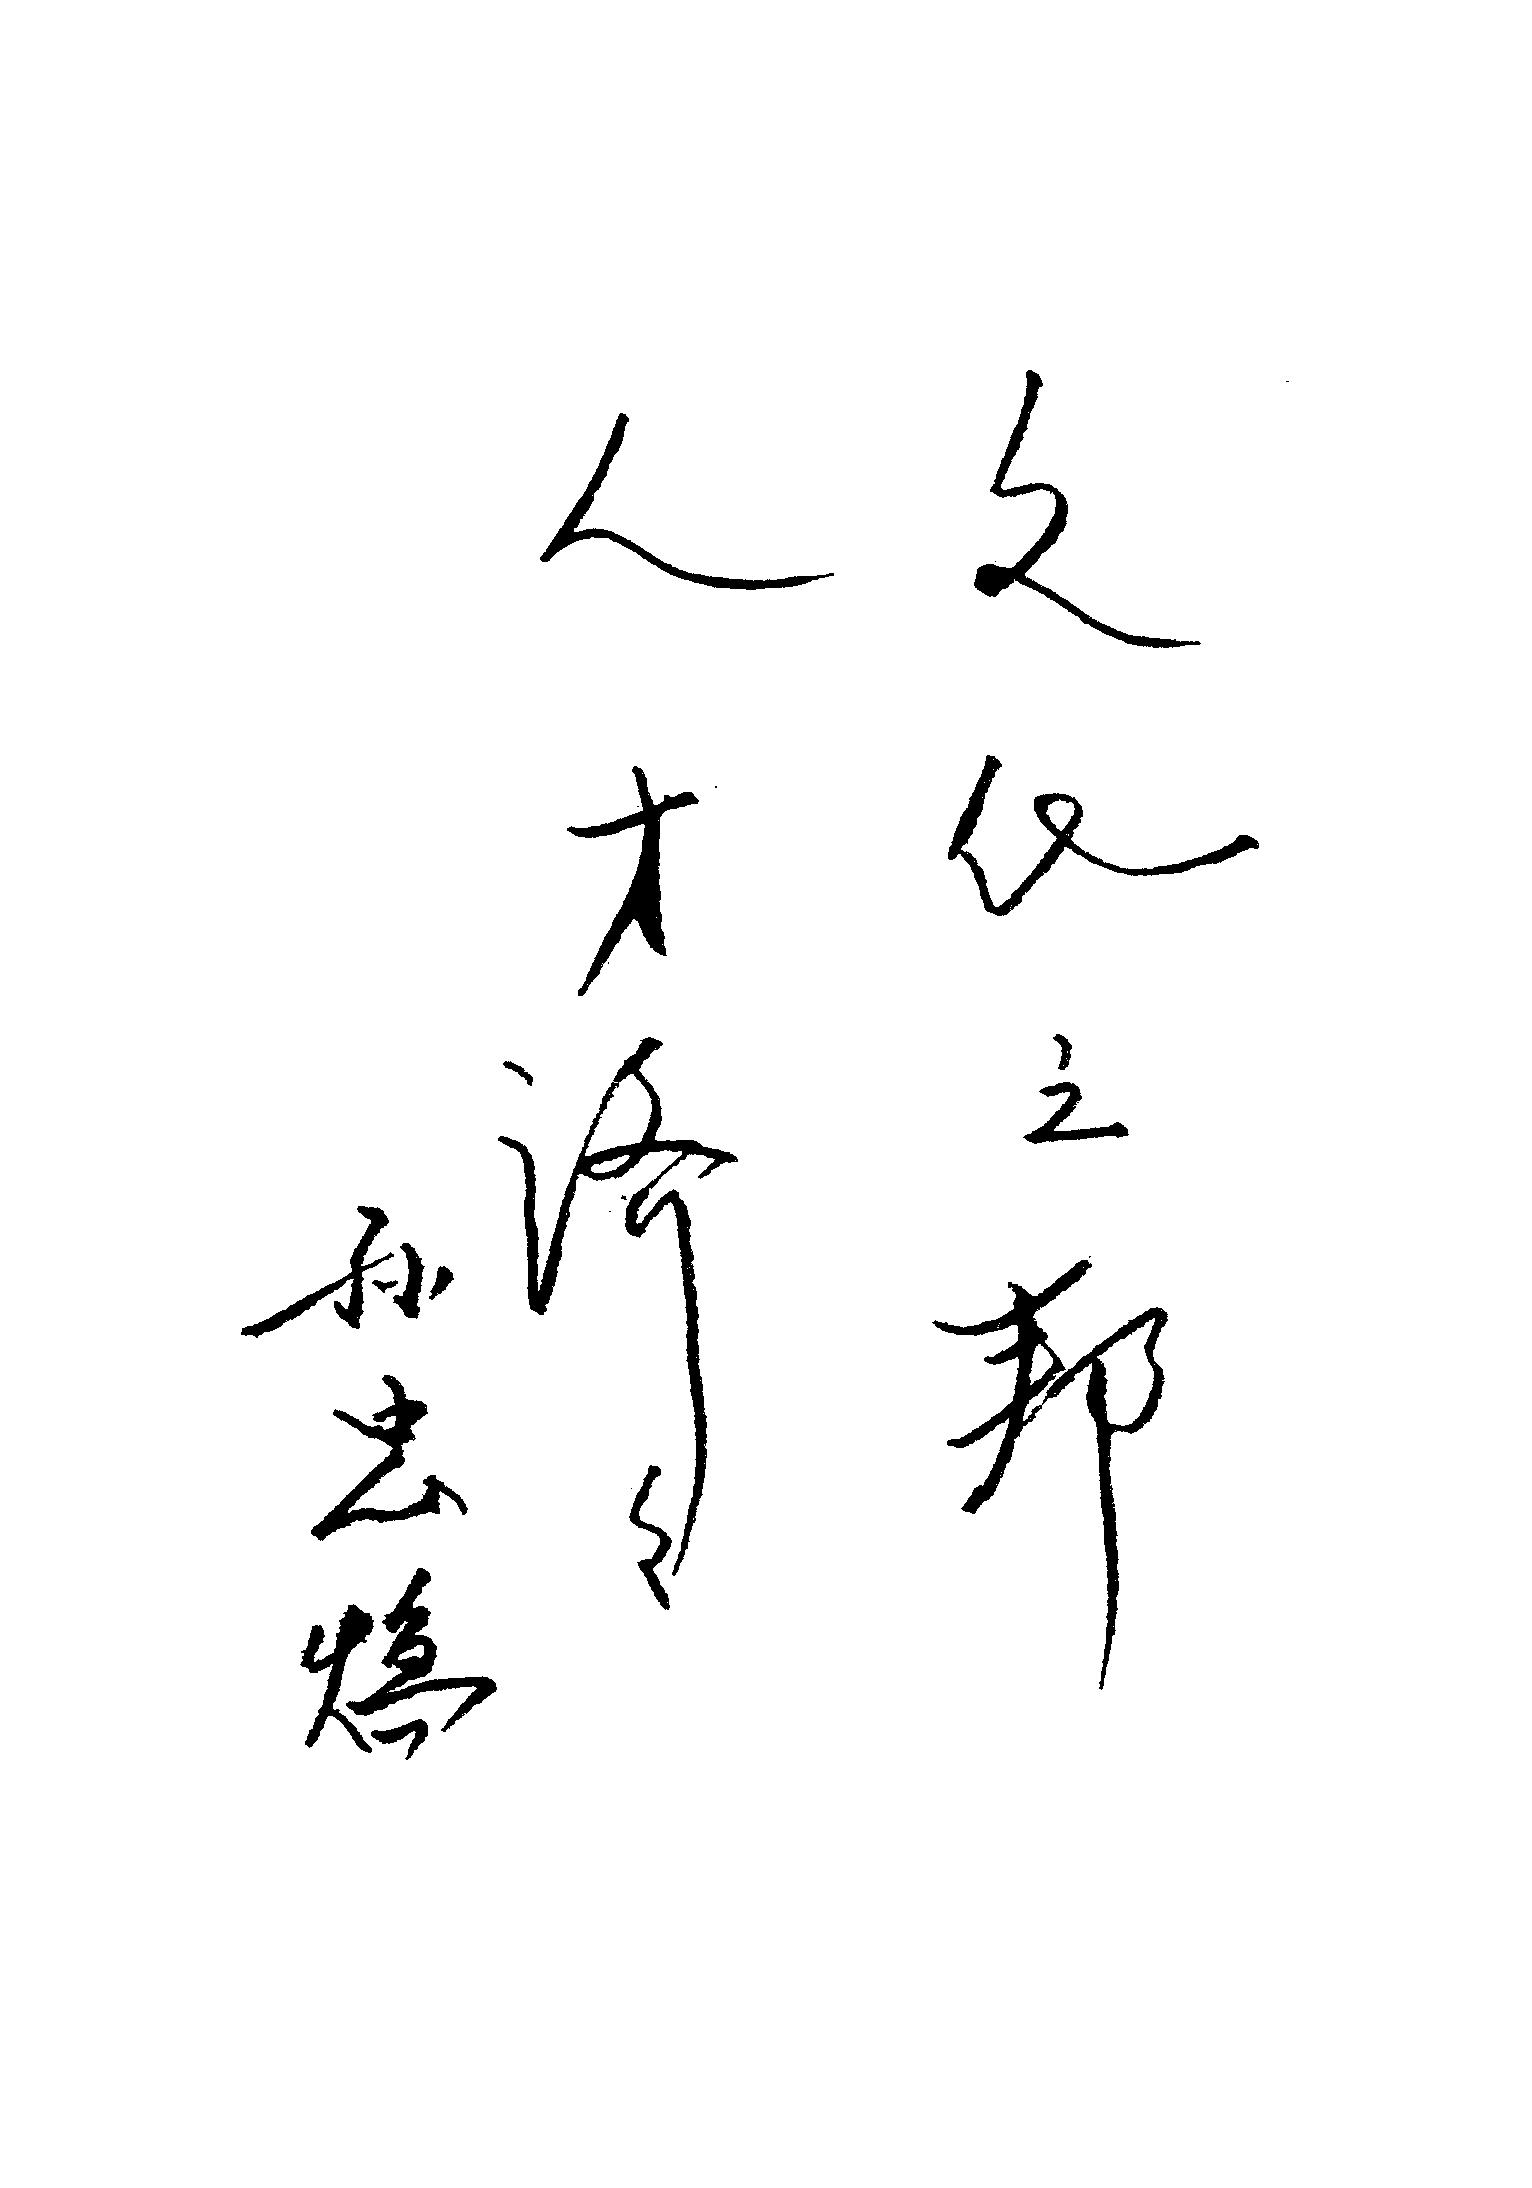 文化之邦
人才济济
孙忠焕